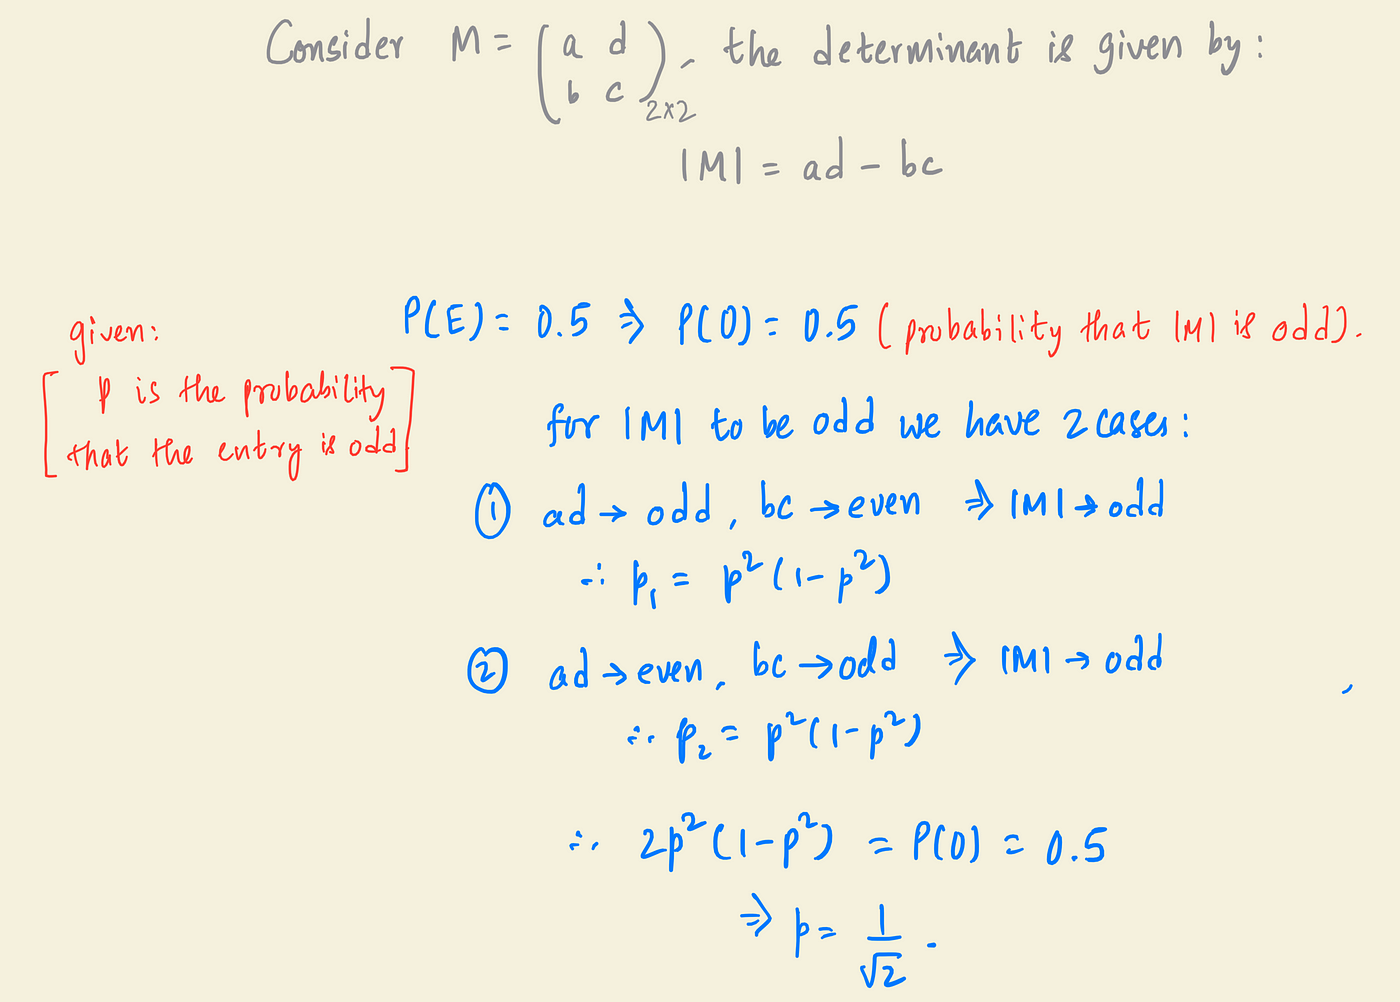 Consider M = (a d
b c)2×2, the determinant is given by:
|M| = ad - bc
given:
[p is the probability
that the entry is odd]
P(E) = 0.5 ⇒ P(O) = 0.5 (probability that |M| is odd).
for |M| to be odd we have 2 cases:
① ad → odd, bc → even ⇒ |M| → odd
∴ p₁ = p²(1-p²)
② ad → even, bc → odd ⇒ |M| → odd
∴ p₂ = p²(1-p²)
∴ 2p²(1-p²) = P(O) = 0.5
⇒ p = 1/√2.